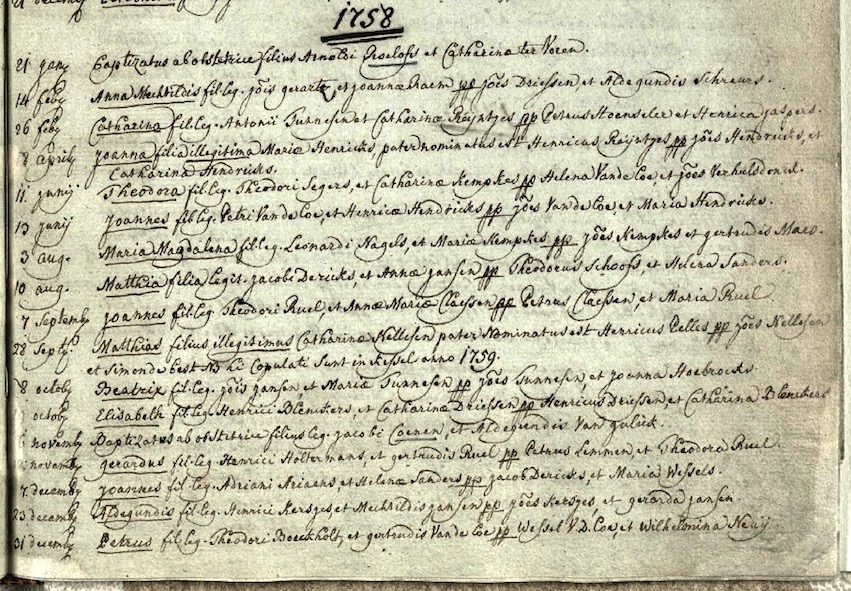 21 decemb
1758
21 janÿ Baptizatus ab obstetrice filius Arnoldi Roelofs et Catharinæ ter Voren.
14 febÿ Anna Mechtildis fil. leg. jões gerartz, et joannæ Raem pp jões Driessen et Aldegundis Schreurs.
26 febÿ Catharina fil. leg. Antonii Tunnesen et Catharinæ Reÿntjes pp Petrus Hoenseler et Henrica jaspers.
8 aprilÿ joanna filia illegitima Mariæ Henricks, pater nominatus est Henricus Reÿntjes pp jões Hendricks, et
Catharina Hindricks.
11. junij Theodora fil. leg. Theodori Segers, et Catharinæ Kempkes pp Helena Van de Loe, et jões Verhelsdonck.
13 junij joannes fil. leg. Petri Van de Loe, et Henricæ Hendricks pp jões Van de Loe, et Maria Hendricks.
3 aug. Maria Magdalena fil. leg. Leonardi Nagels, et Mariæ Kempkes pp jões Kempkes et gertrudis Maes.
10 aug. Matthia filia legit. jacobi Dericks, et Annæ jansen pp Theodorus Schoofs, et Helena Sanders.
7 Septembÿ joannes fil. leg. Theodori Ruel, et Annæ Mariæ Claessen pp Petrus Claessen, et Maria Ruel
28 Septÿ. Matthias filius illegitimus Catharinæ Nellesen pater Nominatus est Henricus Pelles pp jões Nellesen
et Simonde best NB hi Copulati Sunt in Kessel anno 1759.
8 octobÿ Beatrix fil. leg. jões jansen et Mariæ Tunnesen pp jões Tunnesen, et joanna Hoebrocks
octobÿ Elisabeth fil. leg. Henrici Blenckers, et Catharinæ Driessen pp Henricus Driessen et Catharina Blenckers
novembÿ Baptizatus ab obstetrice filius leg. jacobi Coenen, et Aldegundis Van gulick.
novembÿ gerardus fil. leg. Henrici Holtermans, et gertrudis Ruel pp Petrus Lemmen, et Theodora Ruel.
7 decembÿ joannes fil. leg. Adriani Ariaens et Helenæ Sanders pp jacob Dericks, et Maria Wessels.
23 decembÿ Aldegundis fil. leg. Henrici Kersjes et Mechtildis jansen pp jões Kersjes, et gerarda jansen.
31 decembÿ Petrus fil. leg. Theodori Boeckholt, et gertrudis Van de Loe pp Wessel V.D. Loe, et Wilhelmina Neuij